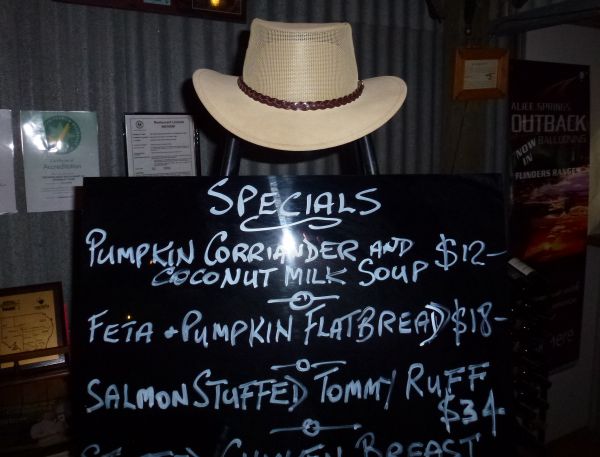 SPECIALS
PUMPKIN CORRIANDER AND
COCONUT MILK SOUP $12-
FETA + PUMPKIN FLATBREAD $18-
SALMON STUFFED TOMMY RUFF
$34-
CHICKEN BREAST
Certificate of
Accreditation
ALICE SPRINGS
OUTBACK
BALLOONING
NOW
IN
FLINDERS RANGES